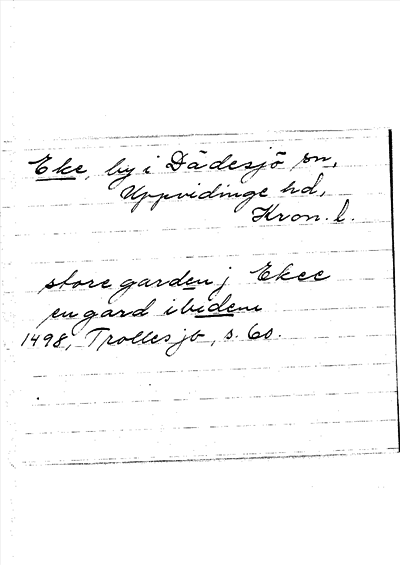 Eke, by i Dädesjö sn,
Uppvidinge hd,
Kron. l.
store garden j Ekee
en gard ibidem
1498, Trollesjö, s. 60.